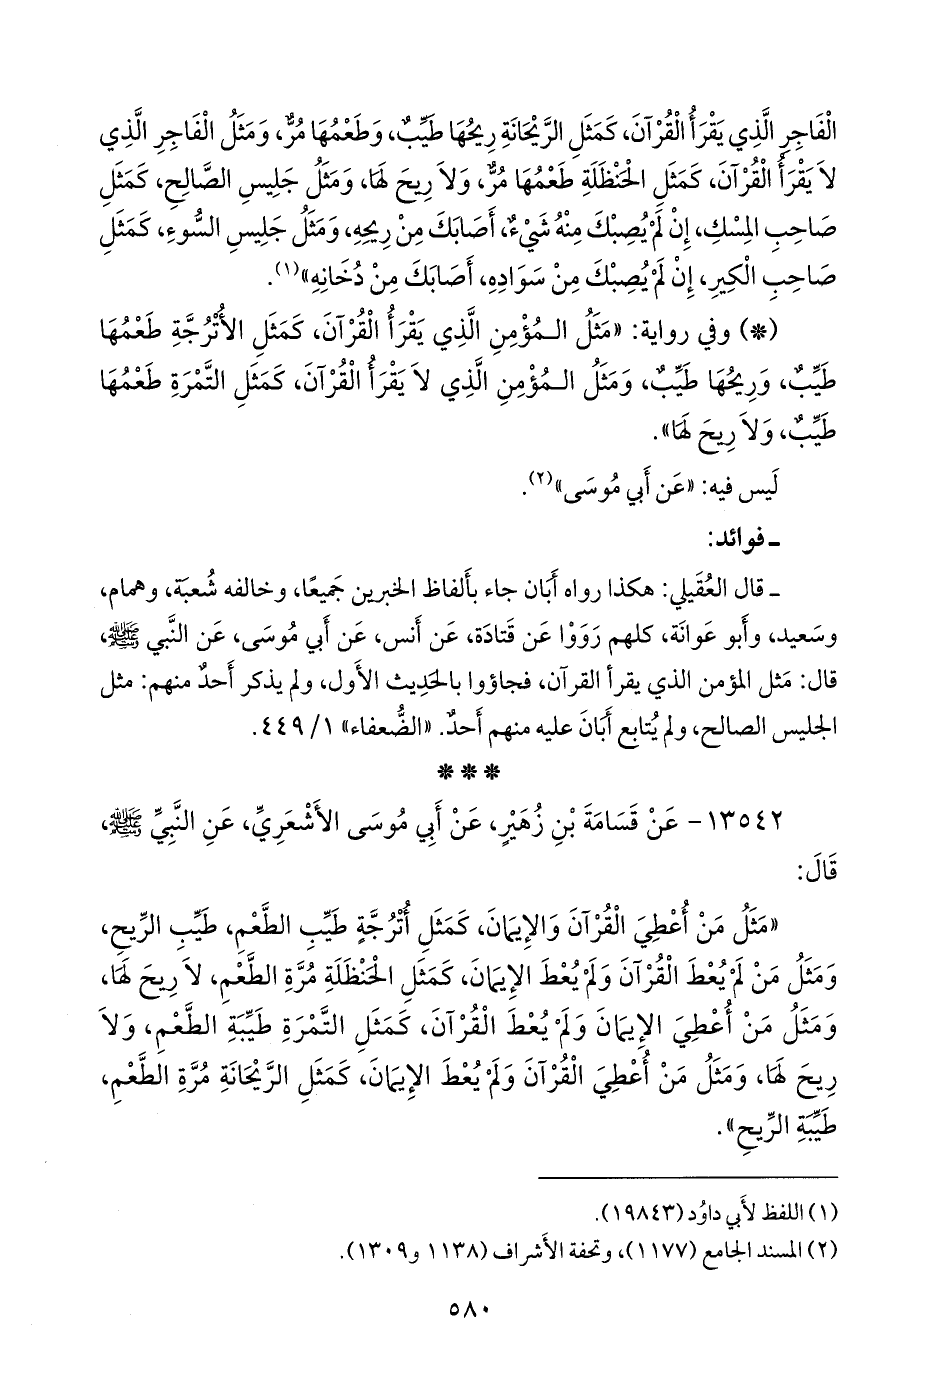 الْفَاجِرِ الَّذِي يَقْرَأُ الْقُرْآنَ، كَمَثَلِ الرَّيْحَانَةِ رِيحُهَا طَيِّبٌ، وَطَعْمُهَا مُرٌّ، وَمَثَلُ الْفَاجِرِ الَّذِي
لاَ يَقْرَأُ الْقُرْآنَ، كَمَثَلِ الْحَنْظَلَةِ طَعْمُهَا مُرٌّ، وَلاَ رِيحَ لَهَا، وَمَثَلُ جَلِيسِ الصَّالِحِ، كَمَثَلِ
صَاحِبِ الْمِسْكِ، إِنْ لَمْ يُصِبْكَ مِنْهُ شَيْءٌ، أَصَابَكَ مِنْ رِيحِهِ، وَمَثَلُ جَلِيسِ السُّوءِ، كَمَثَلِ
صَاحِبِ الْكِيرِ، إِنْ لَمْ يُصِبْكَ مِنْ سَوَادِهِ، أَصَابَكَ مِنْ دُخَانِهِ»(١).
(*) وفي رواية: «مَثَلُ الْمُؤْمِنِ الَّذِي يَقْرَأُ الْقُرْآنَ، كَمَثَلِ الأُتْرُجَّةِ طَعْمُهَا
طَيِّبٌ، وَرِيحُهَا طَيِّبٌ، وَمَثَلُ الْمُؤْمِنِ الَّذِي لاَ يَقْرَأُ الْقُرْآنَ، كَمَثَلِ التَّمْرَةِ طَعْمُهَا
طَيِّبٌ، وَلاَ رِيحَ لَهَا».
لَيس فيه: «عَن أَبي مُوسَى»(٢).
ـ فوائد:
ـ قال العُقَيلي: هكذا رواه أَبَان جاء بأَلفاظ الخبرين جَميعًا، وخالفه شُعبَة، وهمام،
وسَعيد، وأَبو عَوانَة، كلهم رَوَوْا عَن قَتادَة، عَن أَنس، عَن أَبي مُوسَى، عَن النَّبي ﷺ،
قال: مَثل المؤمن الذي يقرأ القرآن، فجاؤوا بالحَديث الأَول، ولم يذكر أَحدٌ منهم: مثل
الجليس الصالح، ولم يُتابع أَبَانَ عليه منهم أَحدٌ. «الضُّعفاء» ١/ ٤٤٩.
* * *
١٣٥٤٢- عَنْ قَسَامَةَ بْنِ زُهَيْرٍ، عَنْ أَبِي مُوسَى الأَشْعَرِيِّ، عَنِ النَّبِيِّ ﷺ،
قَالَ:
«مَثَلُ مَنْ أُعْطِيَ الْقُرْآنَ وَالإِيمَانَ، كَمَثَلِ أُتْرُجَّةٍ طَيِّبِ الطَّعْمِ، طَيِّبِ الرِّيحِ،
وَمَثَلُ مَنْ لَمْ يُعْطَ الْقُرْآنَ وَلَمْ يُعْطَ الإِيمَانَ، كَمَثَلِ الْحَنْظَلَةِ مُرَّةِ الطَّعْمِ، لاَ رِيحَ لَهَا،
وَمَثَلُ مَنْ أُعْطِيَ الإِيمَانَ وَلَمْ يُعْطَ الْقُرْآنَ، كَمَثَلِ التَّمْرَةِ طَيِّبَةِ الطَّعْمِ، وَلاَ
رِيحَ لَهَا، وَمَثَلُ مَنْ أُعْطِيَ الْقُرْآنَ وَلَمْ يُعْطَ الإِيمَانَ، كَمَثَلِ الرَّيْحَانَةِ مُرَّةِ الطَّعْمِ،
طَيِّبَةِ الرِّيحِ».
(١) اللفظ لأَبي داوُد (١٩٨٤٣).
(٢) المسند الجامع (١١٧٧)، وتحفة الأَشراف (١١٣٨ و١٣٠٩).
٥٨٠